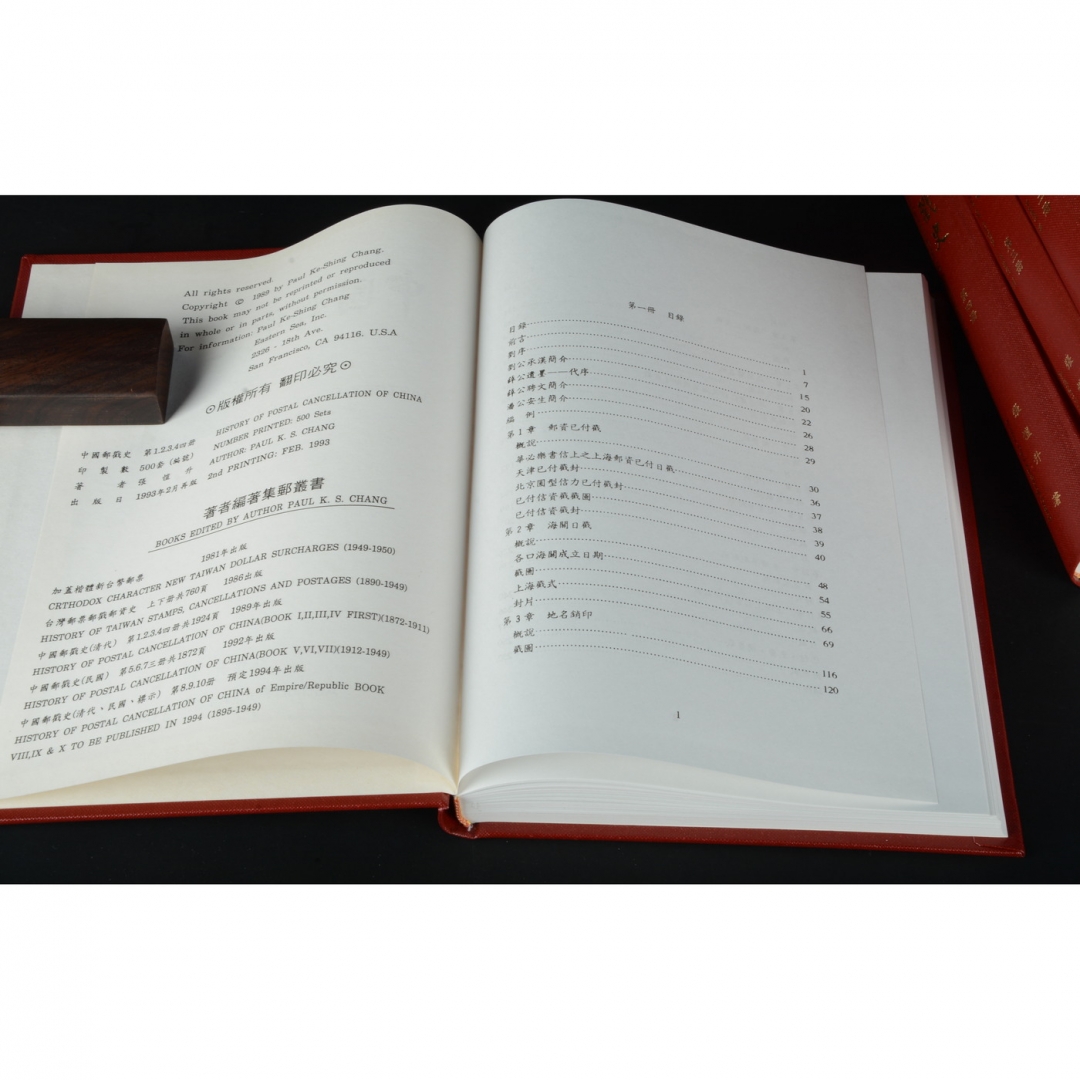 All rights reserved.
Copyright © 1989 by Paul Ke-Shing Chang.
This book may not be reprinted or reproduced
in whole or in parts, without permission.
For information: Paul Ke-Shing Chang
Eastern Sea, Inc.
2326 - 18th Ave.
San Francisco, CA 94116. U.S.A
⊙版權所有 翻印必究⊙
中國郵戳史 第1.2.3.4四冊
印製數 500套(編號)
著者 張愷升
出版日 1993年2月再版
HISTORY OF POSTAL CANCELLATION OF CHINA
NUMBER PRINTED: 500 Sets
AUTHOR: PAUL K. S. CHANG
2nd PRINTING; FEB. 1993
著者編著集郵叢書
BOOKS EDITED BY AUTHOR PAUL K. S. CHANG
加蓋楷體新台幣郵票 1981年出版
ORTHODOX CHARACTER NEW TAIWAN DOLLAR SURCHARGES (1949-1950)
台灣郵票郵戳郵資史 上下冊共760頁 1986出版
HISTORY OF TAIWAN STAMPS, CANCELLATIONS AND POSTAGES (1890-1949)
中國郵戳史(清代) 第1.2.3.4四冊共1924頁 1989年出版
HISTORY OF POSTAL CANCELLATION OF CHINA(BOOK I,II,III,IV FIRST)(1872-1911)
中國郵戳史(民國) 第5.6.7三冊共1872頁 1992年出版
HISTORY OF POSTAL CANCELLATION OF CHINA(BOOK V,VI,VII)(1912-1949)
中國郵戳史(清代、民國、標示) 第8.9.10冊 預定1994年出版
HISTORY OF POSTAL CANCELLATION OF CHINA of Empire/Republic BOOK
VIII,IX & X TO BE PUBLISHED IN 1994 (1895-1949)
第一冊 目錄
目錄 1
前言 7
劉序 15
劉公承漢簡介 20
薛公遺墨——代序 22
薛公聘文簡介 26
潘公安生簡介 28
編 例 29
第1章 郵資已付戳
概說 30
華必樂書信上之上海郵資已付日戳 36
天津已付戳封 37
北京圓型信力已付戳封 38
已付信資戳戳圖 39
已付信資戳封 40
第2章 海關日戳
概說 48
各口海關成立日期 54
戳圖 55
上海戳式 66
封片 69
第3章 地名銷印
概說 116
戳圖 120
1